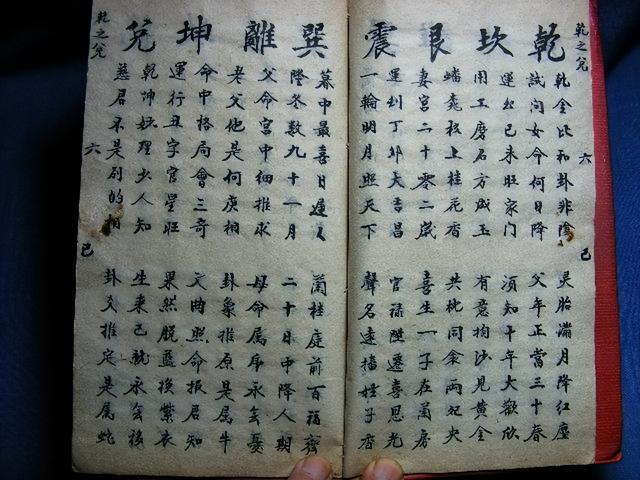 乾之兌 六 已
乾 坎 艮 震
乾金比和卦非陰 灵胎滿月降紅塵
試问女命何日降 父年正當三十春
運交已未旺家門 須知十年大歡欣
用工磨石方成玉 有意掏沙見黃金
蟠龍枝上桂花香 共枕同衾兩央
妻宮二十零二歲 喜生一子在蘭房
運到丁卯大吉昌 官祿陞遷喜恩光
一輪明月照天下 聲名遠播姓子香
巽 離 坤 兌
暮中最喜日遲〻 蘭桂庭前百福齊
隆冬数九十一月 二十日中降人期
父命宮中細推求 母命属虎永無憂
老父他是何庚相 卦象推原是属牛
命中格局會三奇 文曲照命报君知
運行丑字官星旺 果然脱藍換紫衣
乾坤妙理少人知 生来已就永無移
慈君不是别的相 卦爻推定是属蛇
乾之兌 六 已